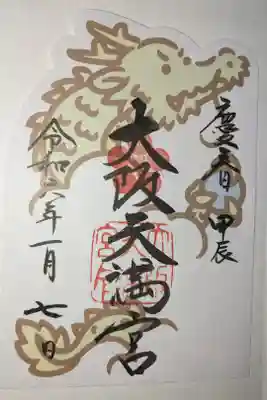 慶春 甲辰
大阪天満宮
令和六年一月七日